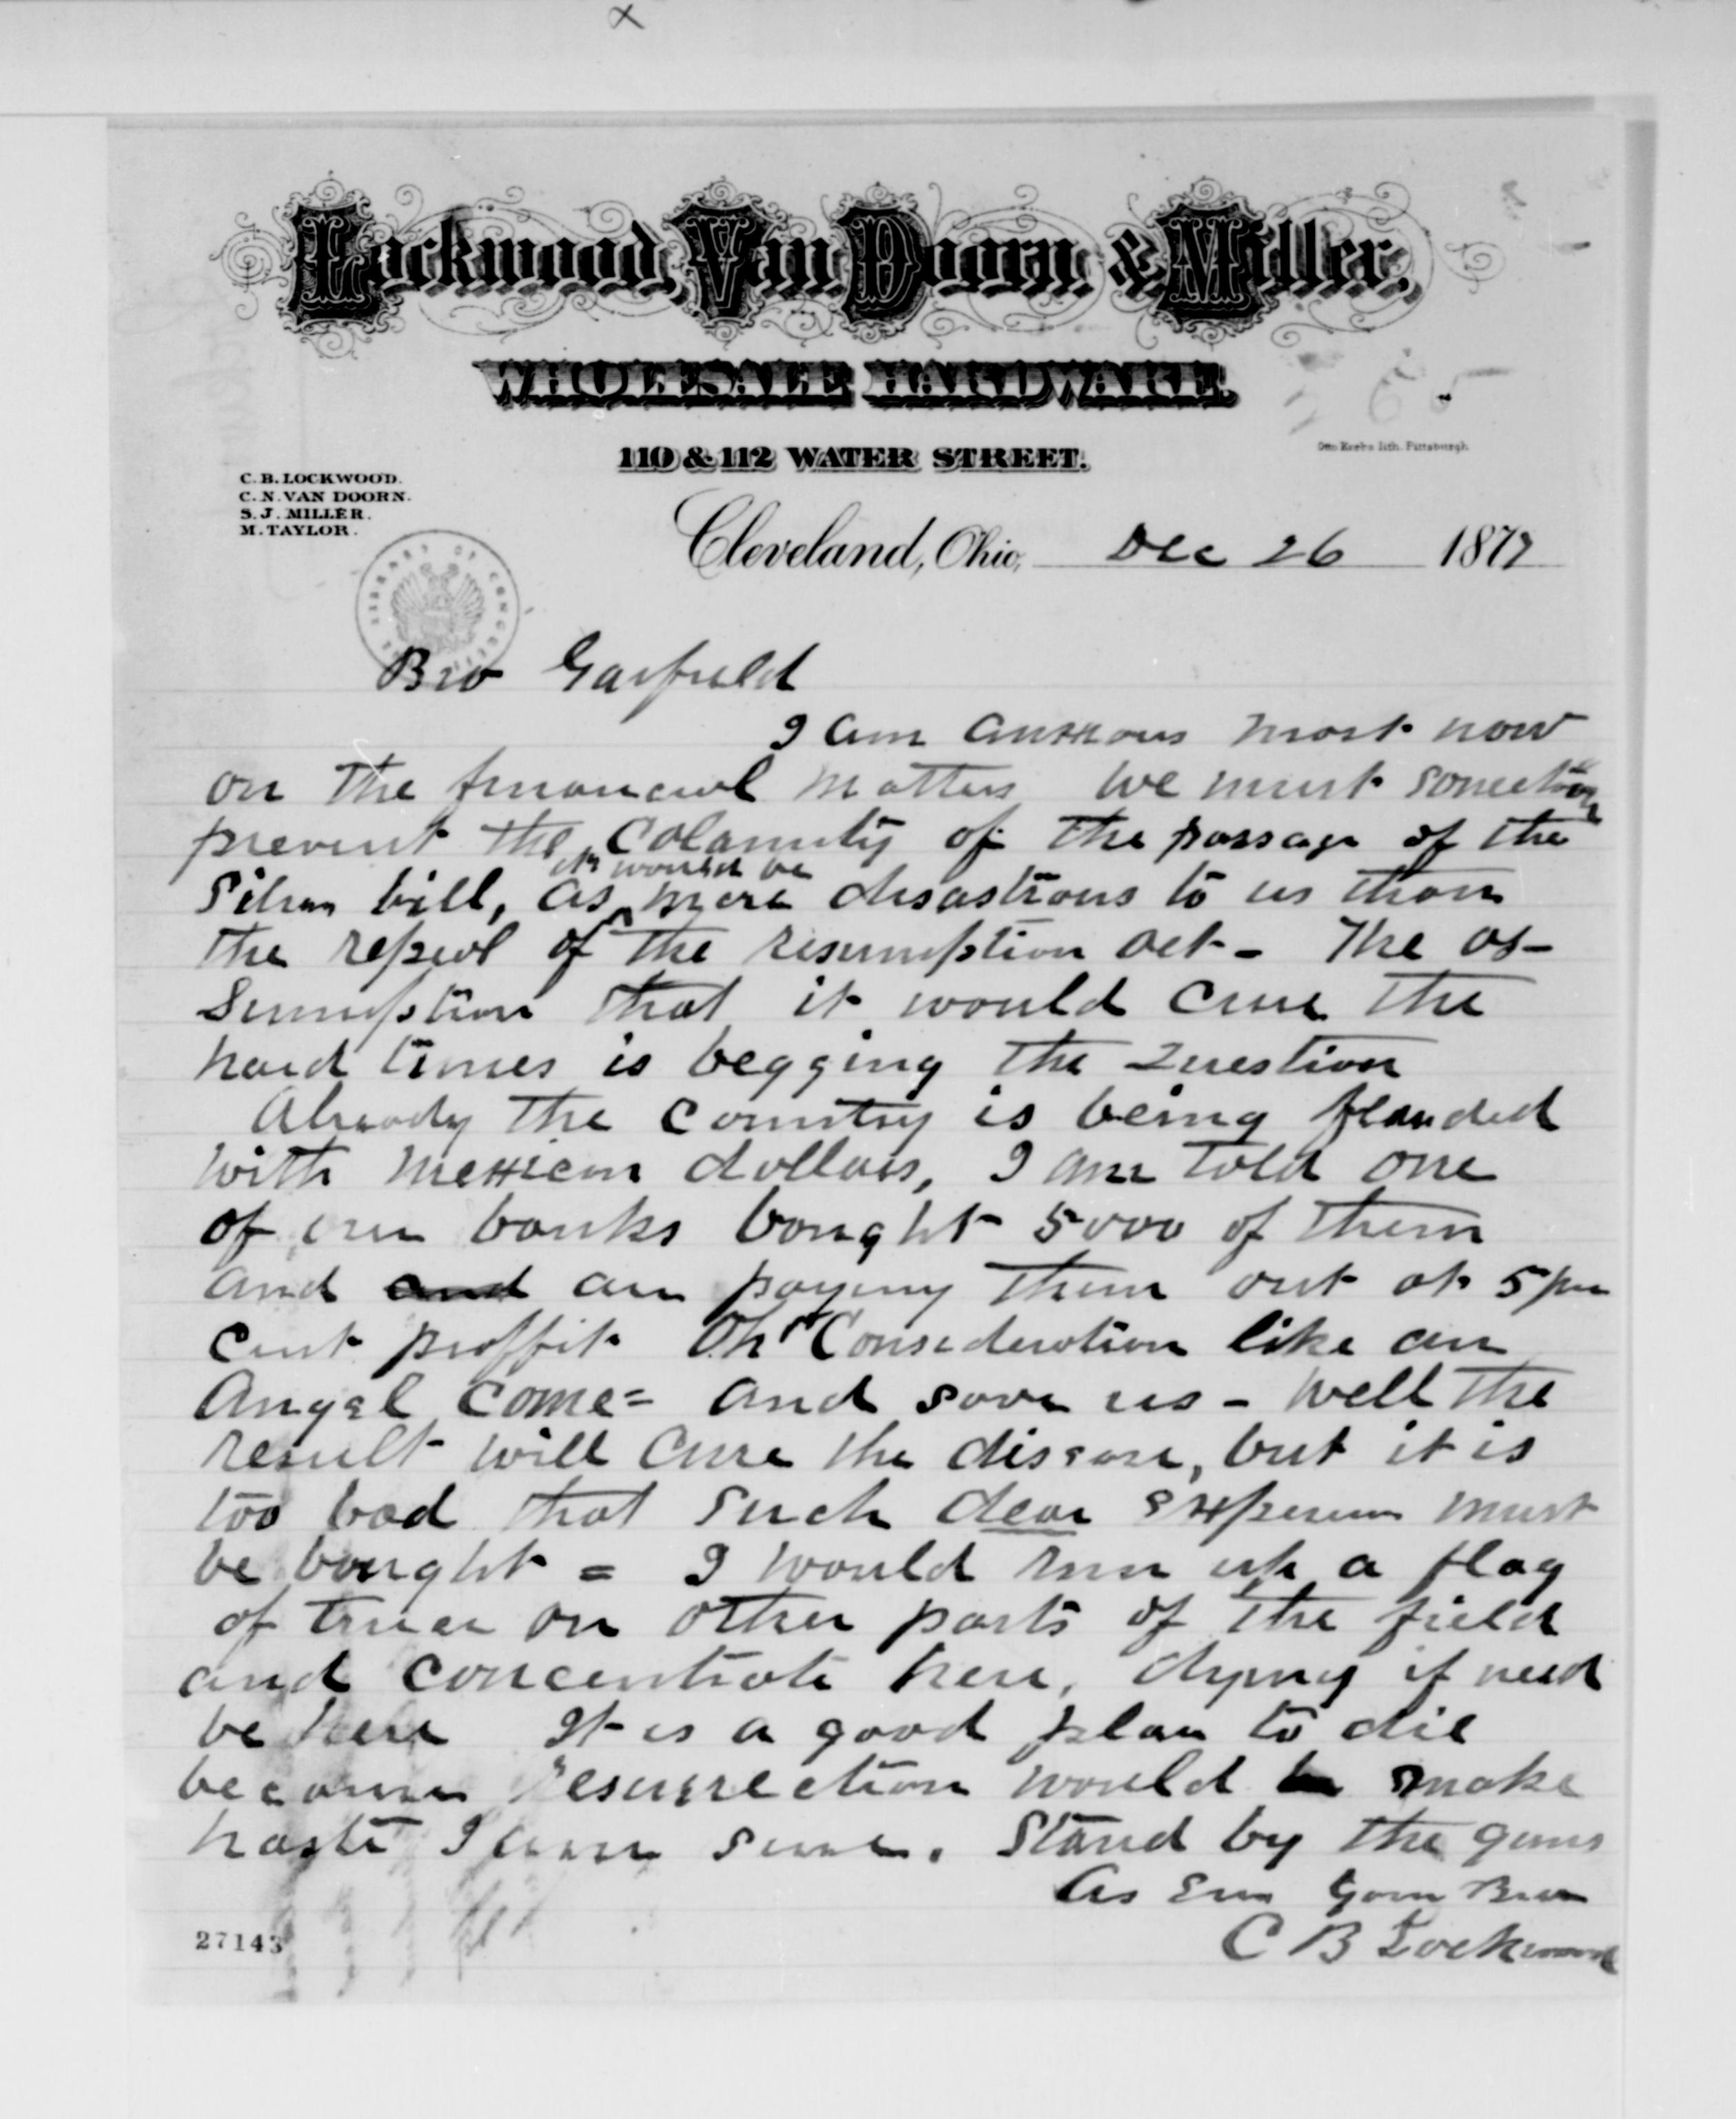 x
Lockwood, Van Doorn & Miller,
WHOLESALE HARDWARE.
110 & 112 WATER STREET.
Otto Krebs lith. Pittsburgh.
C. B. LOCKWOOD.
C. N. VAN DOORN.
S. J. MILLER.
M. TAYLOR.
Cleveland, Ohio, Dec 26 1877
LIBRARY OF CONGRESS
Bro Garfield
I am anxious most now
on the financial matters We must
prevent the Calamity of the passage of the
it would be
Silver bill, as more disastrous to us than
the repeal of the resumption act - The as-
sumption that it would cure the
hard times is begging the Question
Already the Country is being flouded
with Mexican dollars, I am told one
of our banks bought 5000 of them
and and are paying them out at 5 per
cent proffit Oh "Consideration like an
Angel come = and save us - Well the
result will Cure the disease, but it is
too bad that such dear experience must
be bought = I would run up a flag
of truce on other parts of the field
and concentrate here, dying if need
be here It is a good plan to die
because resurrection would make
haste I am sure. Stand by the guns
As Ever Your Bro
C B Lockwood
27143